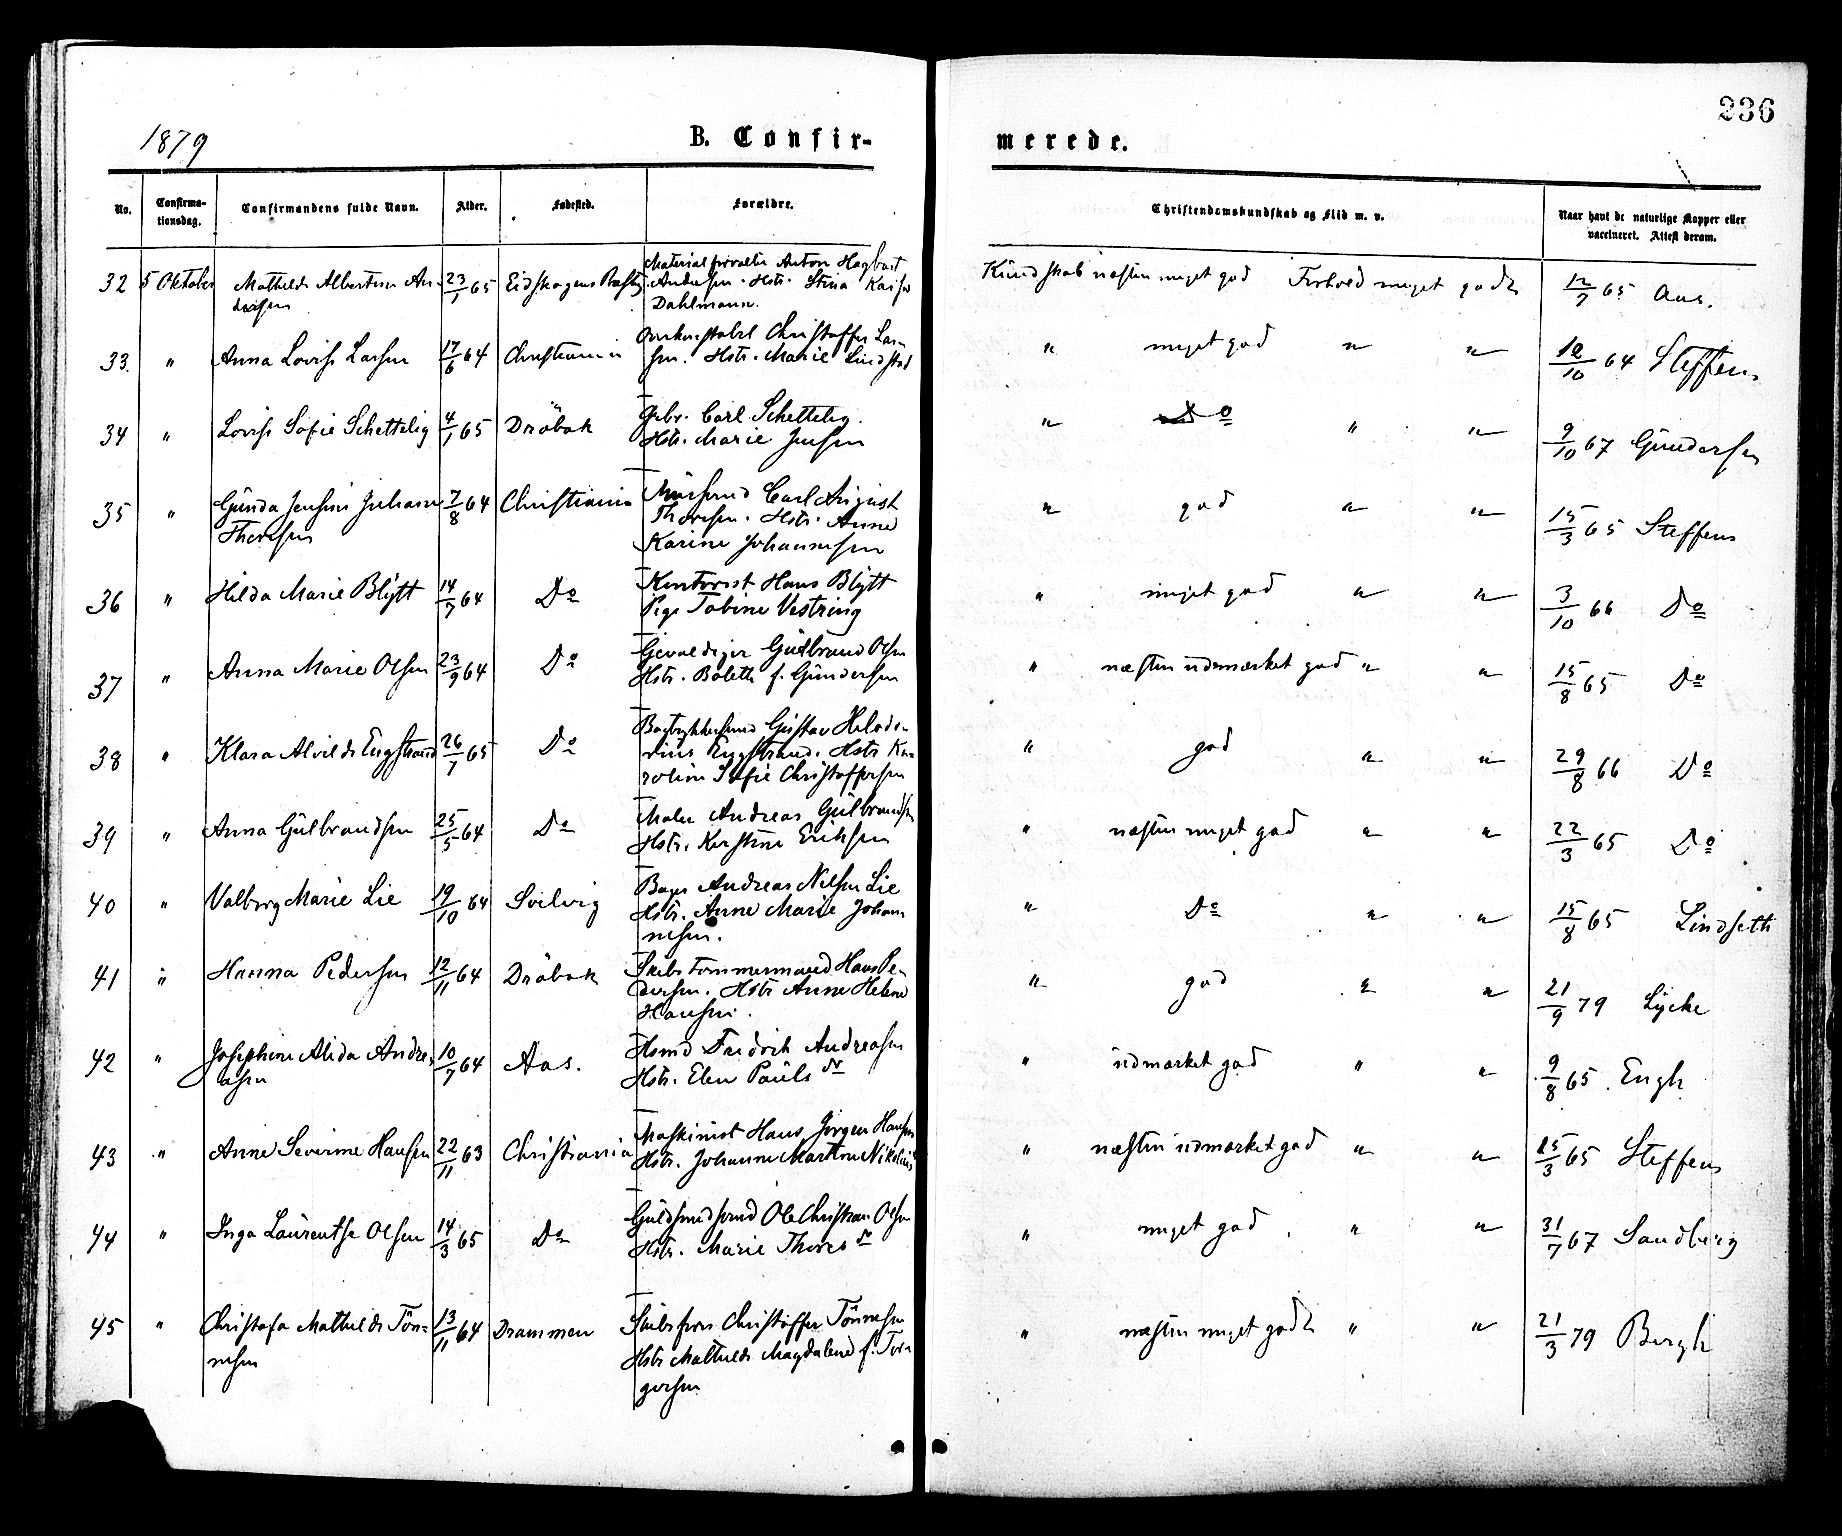 236
1879
B. Confir-
merede.
No.
Confirma-
tionsdag.
Confirmandens fulde Navn.
Alder.
Fødested.
Forældre.
Christendomskundskab og Flid m. v.
Naar havt de naturlige Kopper eller
vaccineret. Attest derom.
32 5 Oktober Mathilde Albertine An- 23/1 65 Eidskogens
dersen
Materialforvalter Anton Hagbart
Andersen. Hstr. Stina Kaisa
Dahlmann.
Kundskab næsten meget god Forhold meget godt 12/7 65 Aas.
33. " Anna Lovise Larsen 17/6 64 Christiania
Christoffer Lar-
sen. Hstr. Marie Lindstad
" meget god " " 12/10 64 Steffens
34 " Lovise Sofie Schettelig 4/1 65 Dröbak
Carl Schettelig.
Hstr. Marie Jensen
" Do " " 9/10 67 Gundersen
35 " Gunda Jensine Juliane 7/8 64 Christiania
Thoresen
Mursvend Carl August
Thoresen. Hstr. Anne
Karine Johannesen
" god " " 15/3 65 Steffens
36 " Hilda Marie Blÿtt 14/7 64 Do
Kontorist Hans Blÿtt
Pige Tobine Vestring
" meget god " " 3/10 66 Do
37 " Anna Marie Olsen 23/9 64 Do
Gevaldiger Gulbrand Olsen
Hstr. Bolette f. Gundersen
" næsten udmærket god " " 15/8 65 Do
38 " Klara Alvilde Engstrand 26/1 65 Do
Bogtrykkersvend Gustav Helode-
rius Engstrand. Hstr Ka-
roline Sofie Christoffersen
" god " " 29/8 66 Do
39 " Anna Gulbrandsen 25/5 64 Do
Maler Andreas Gulbrandsen
Hstr. Kerstine Eriksen
" næsten meget god " " 22/3 65 Do
40 " Valborg Marie Lie 19/10 64 Svelvig
Bager Andreas Nilsen Lie
Hstr. Anne Marie Johan
nesen.
" Do " " 15/8 65 Lindseth
41 " Hanna Pedersen 12/11 64 Dröbak
Skibstømmermand Hans Pe-
dersen. Hstr Anne Helene
Hansen.
" god " " 21/9 79 Lycke
42 " Josephine Alida Andre- 10/7 64 Aas.
asen
Hsmd Fredrik Andreasen
Hstr. Elen Pauls dr
" udmærket god " " 9/8 65. Engh
43 " Anne Severine Hansen 22/11 63 Christiania
Maskinist Hans Jørgen Hansen
Hstr. Johanne Martine
" næsten udmærket god " " 15/3 65 Steffens
44 " Inga Laurentse Olsen 14/3 65 Do
Guldsmedsvend Ole Christian Olsen
Hstr. Marie Thores dr
" meget god " " 31/7 67 Sandberg
45 " Christofa Mathilde Tön- 13/11 64 Drammen
nesen
Christoffer Tönnesen
Hstr Mathilde Magdalene f. Tor-
gersen
" næsten meget godt " " 21/3 79 Bergh